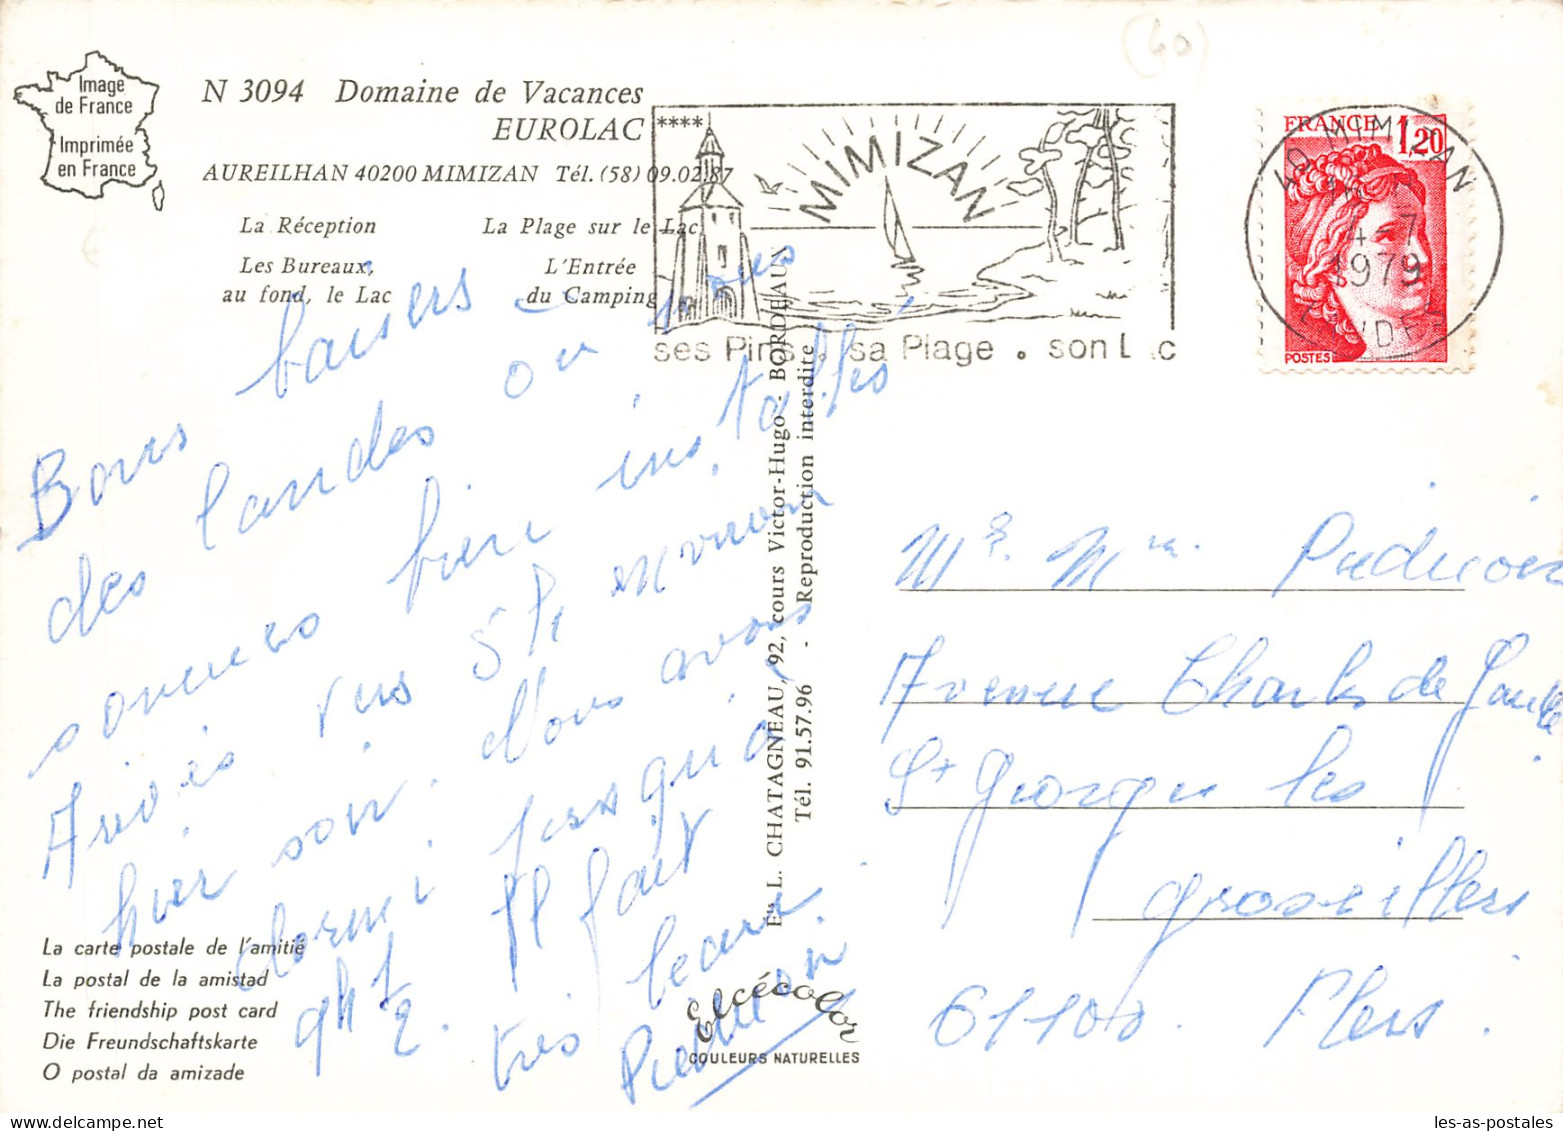 Image
de France
Imprimée
en France
N 3094 Domaine de Vacances
EUROLAC ****
AUREILHAN 40200 MIMIZAN Tél. (58) 09.02.87
La Réception
La Plage sur le Lac
Les Bureaux,
au fond, le Lac
L'Entrée
du Camping
MIMIZAN
ses Pins . sa Plage . son Lac
FRANCE 1,20
POSTES
40 MIMIZAN
4-7
1979
LANDES
(40)
Bons baisers
des landes où nous
sommes bien installés
Arrivés vers 5h environ
hier soir. Nous avons
dormi jusqu'à
9h 1/2. Il fait
très beau.
Ets L. CHATAGNEAU, 92, cours Victor-Hugo - BORDEAUX
Tél. 91.57.96 - Reproduction interdite
Mr. Mme.
Avenue Charles de Gaulle
St Georges les
Groseillers
61100. Flers.
La carte postale de l'amitié
La postal de la amistad
The friendship post card
Die Freundschaftskarte
O postal da amizade
Elcécolor
COULEURS NATURELLES
les-as-postales